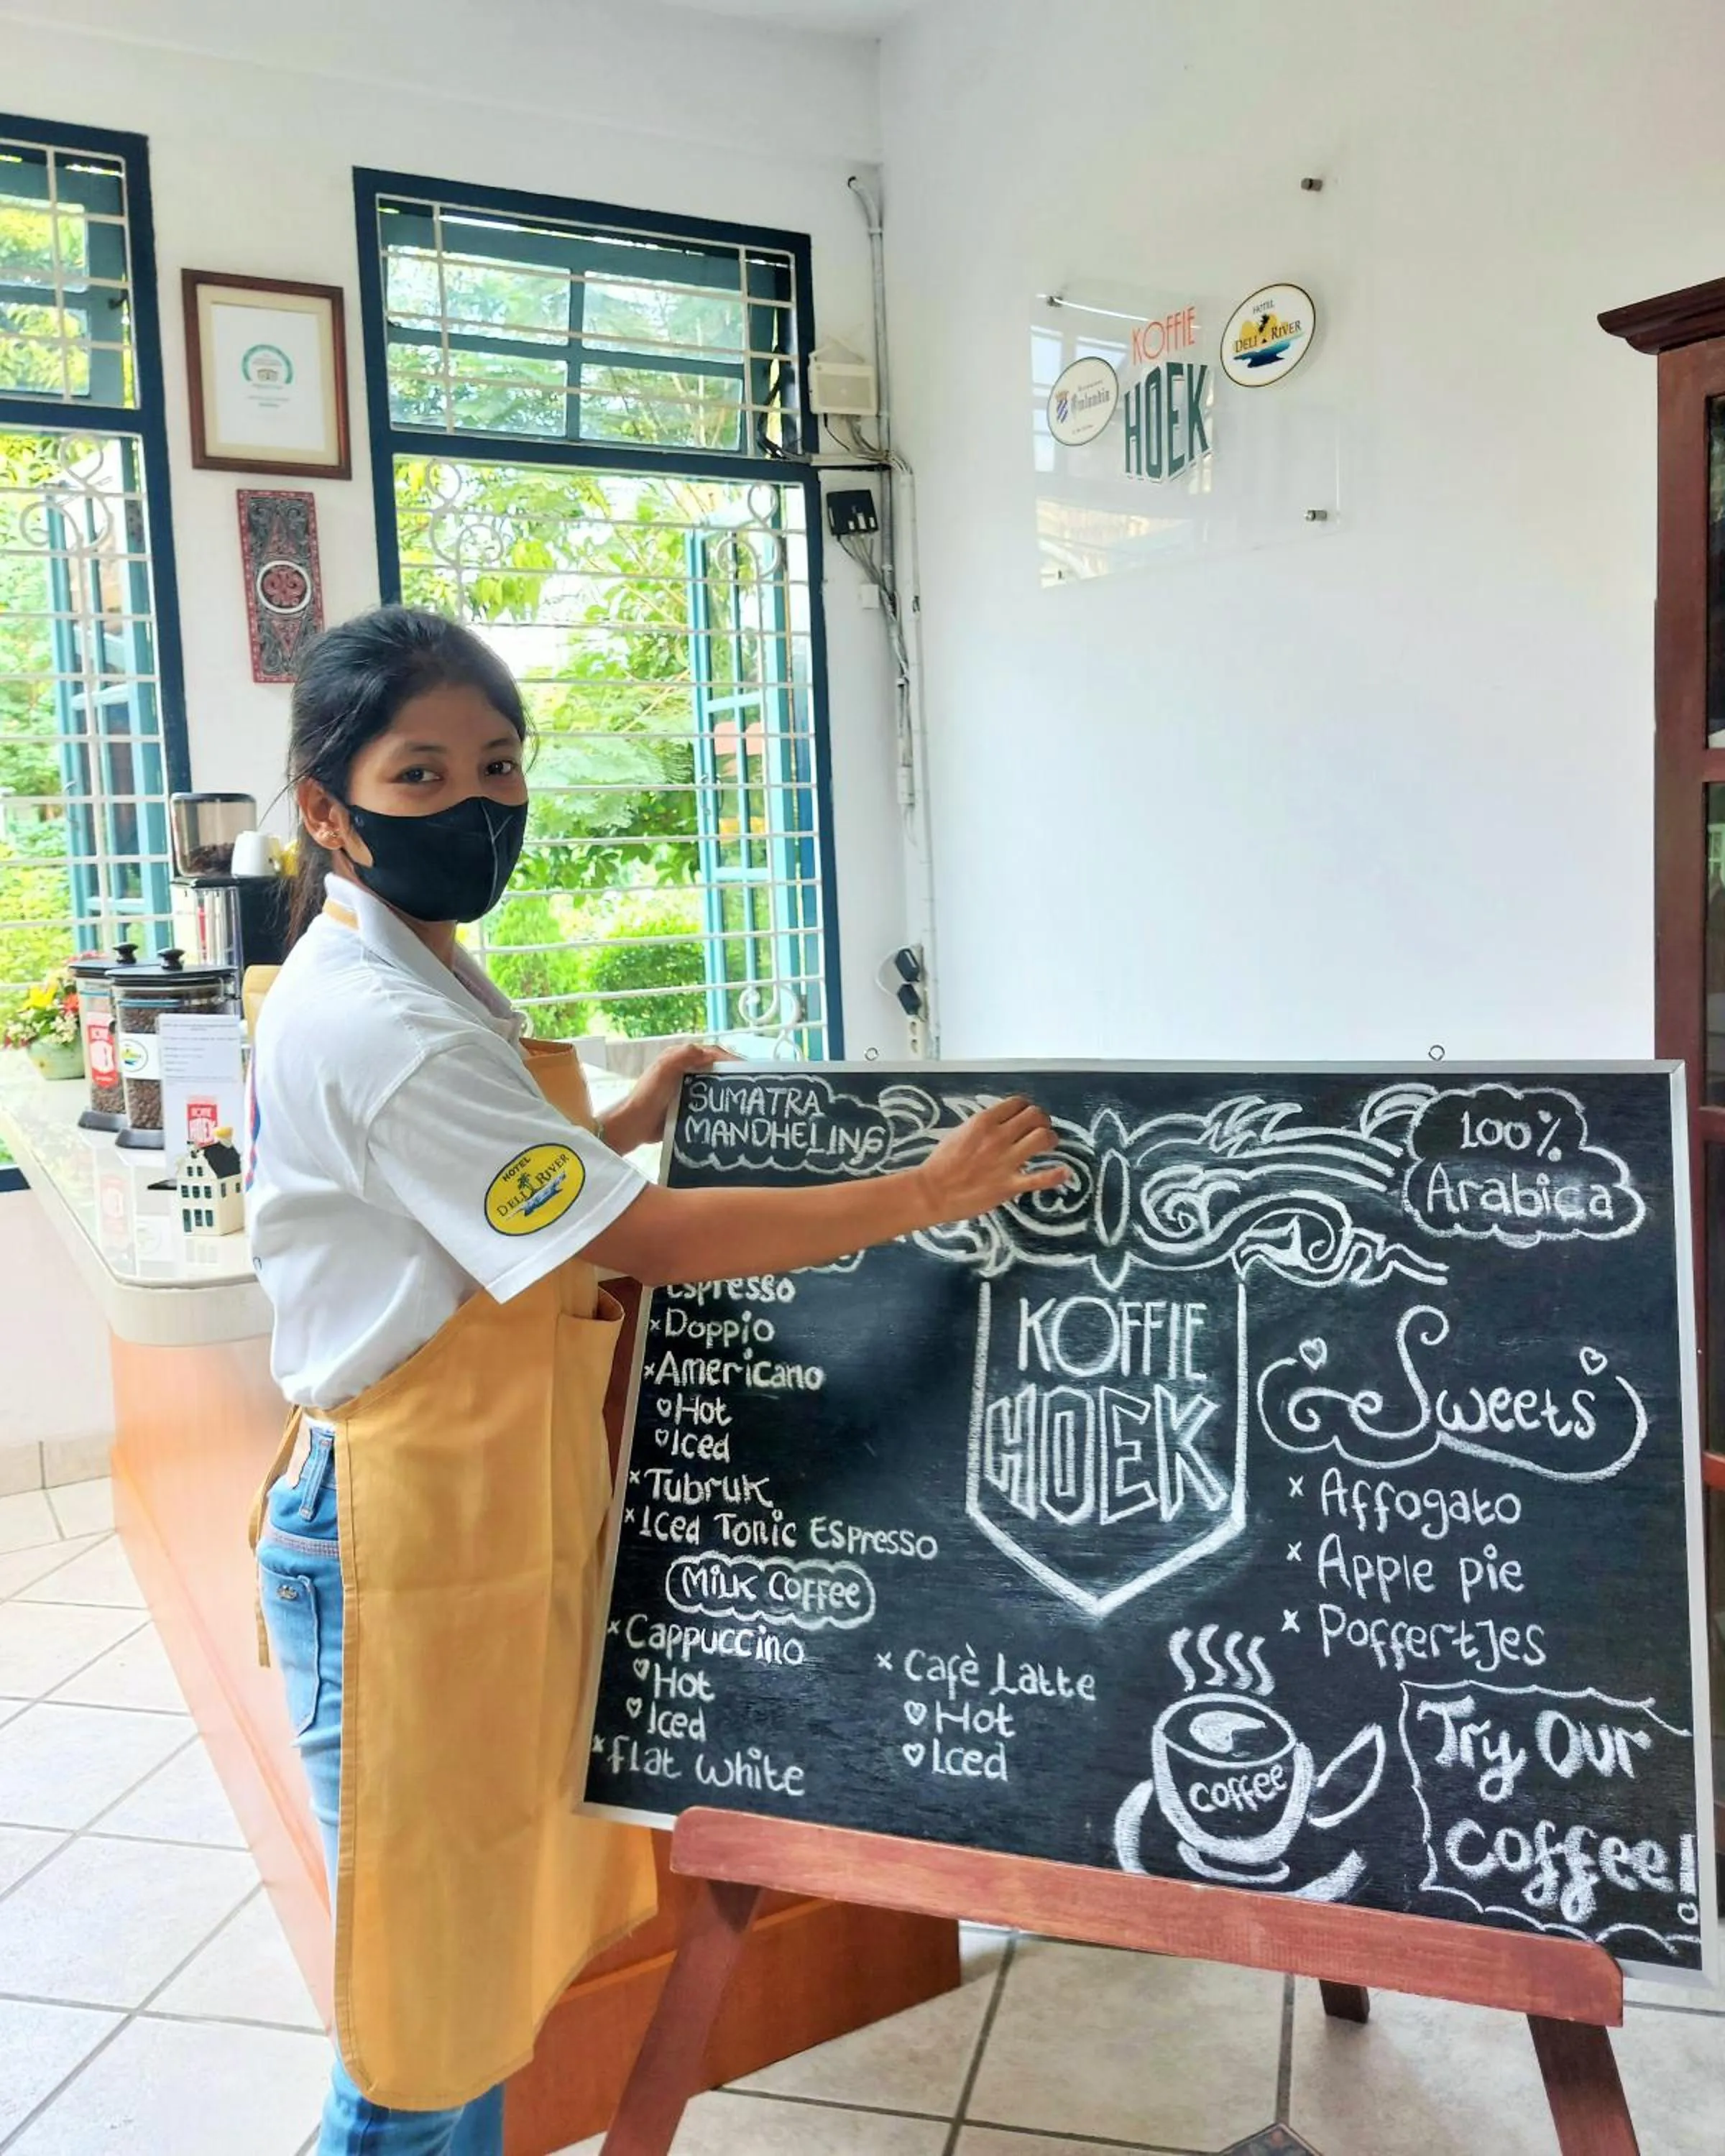 KOFFIE
HOEK
HOTEL
DELI RIVER
HOTEL
DELI RIVER
SUMATRA
MANDHELING
100%
Arabica
Espresso
×Doppio
×Americano
Hot
Iced
×Tubruk
×Iced Tonic Espresso
Milk Coffee
×Cappuccino
Hot
Iced
×Flat White
× Cafè Latte
Hot
Iced
KOFFIE
HOEK
Sweets
× Affogato
× Apple pie
× Poffertjes
coffee
Try Our
Coffee!